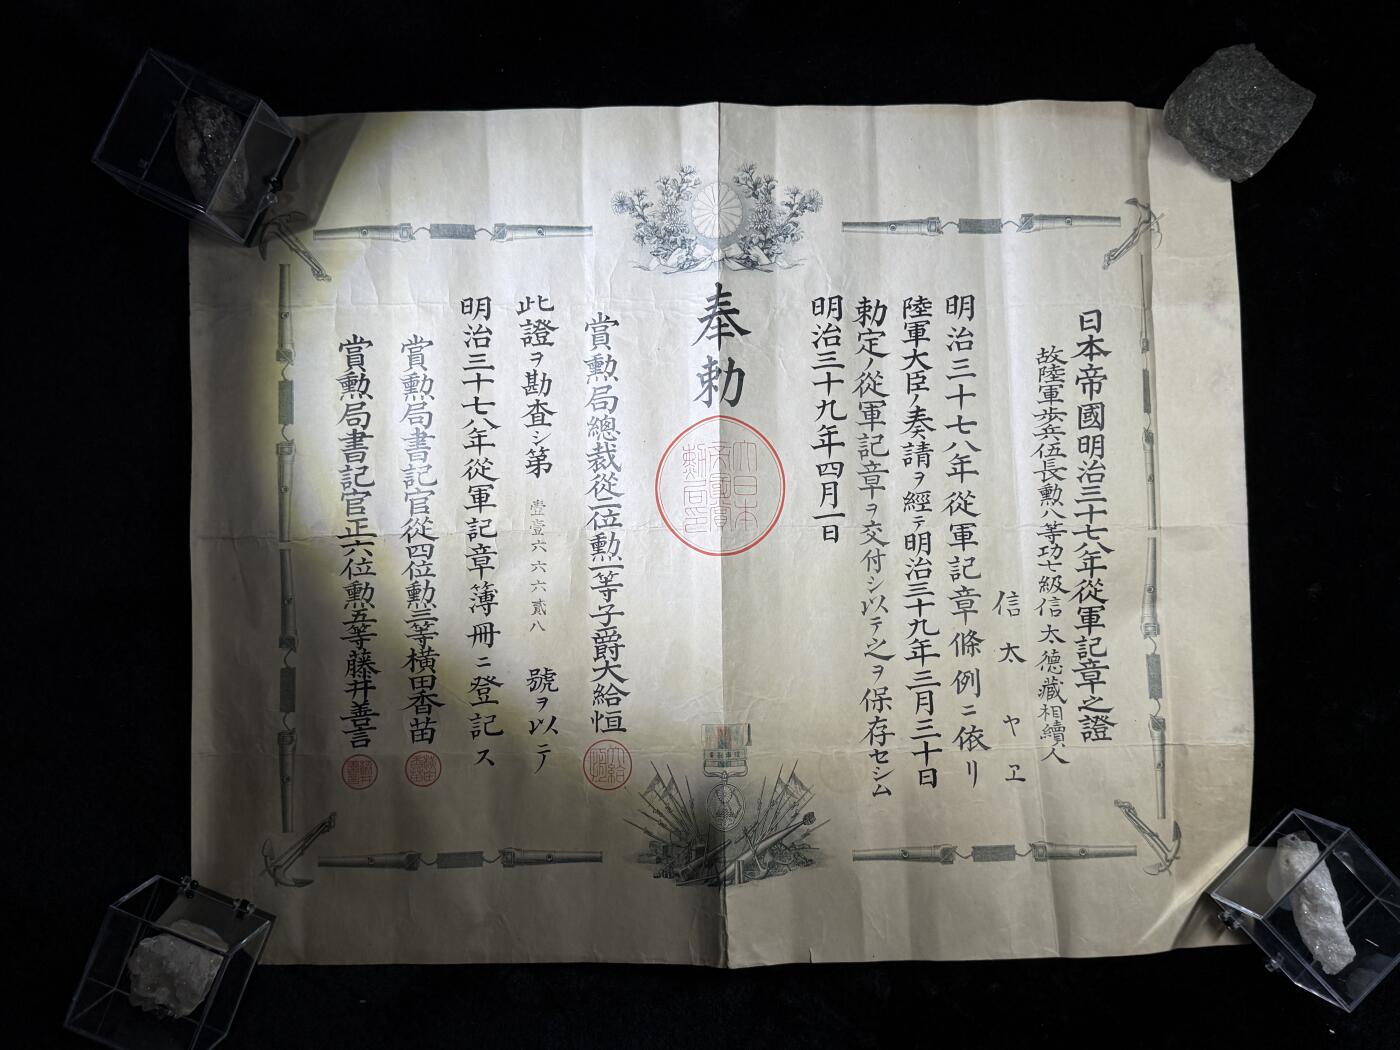 日本帝國明治三十七八年從軍記章之證
故陸軍步兵伍長勲八等功七級信太德藏相續人
信太ヤヱ
明治三十七八年從軍記章條例ニ依リ
陸軍大臣ノ奏請ヲ經テ明治三十九年三月三十日
勅定ノ從軍記章ヲ交付シ以テ之ヲ保存セシム
明治三十九年四月一日
奉勅
大日本帝國賞勲局印
賞勲局總裁從二位勲一等子爵大給恒
此證ヲ勘査シ第壹壹六六六貳八號ヲ以テ
明治三十七八年從軍記章簿冊ニ登記ス
賞勲局書記官從四位勲三等横田香苗
賞勲局書記官正六位勲五等藤井善言